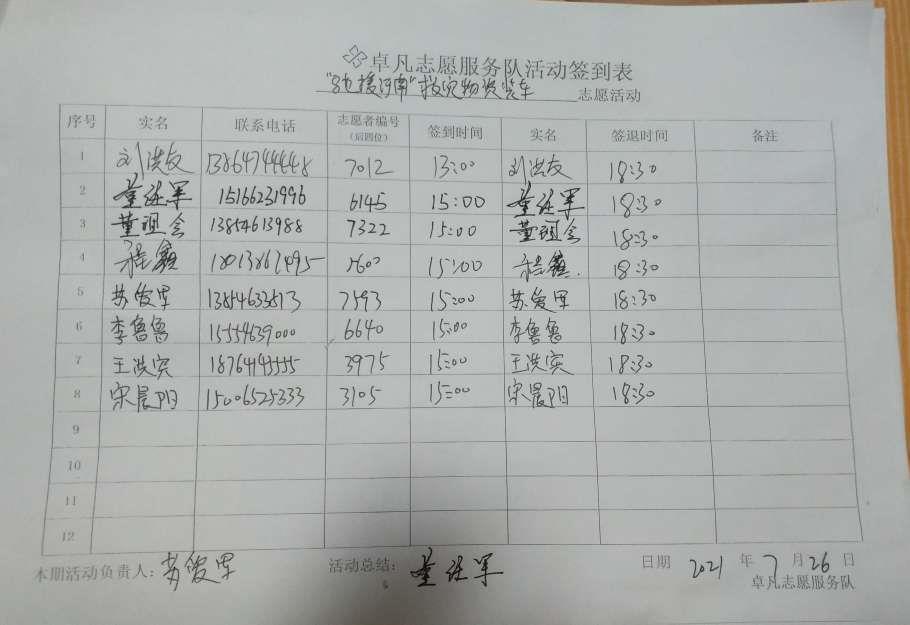 卓凡志愿服务队活动签到表
"驰援河南"救灾物资装车 志愿活动
序号 实名 联系电话 志愿者编号(后四位) 签到时间 实名 签退时间 备注
1 刘洪友 13864744448 7012 13:00 刘洪友 18:30
2 15166231996 6145 15:00 18:30
3 董现会 13854613988 7322 15:00 董现会 18:30
4 程 15:00 程 18:30
5 苏俊军 7593 15:00 苏俊军 18:30
6 李鲁鲁 15554639000 6640 15:00 李鲁鲁 18:30
7 王洪宾 3975 15:00 王洪宾 18:30
8 宋晨阳 15006525333 3105 15:00 宋晨阳 18:30
9
10
11
12
本期活动负责人: 苏俊军 活动总结: 日期 2021 年 7 月 26 日
卓凡志愿服务队